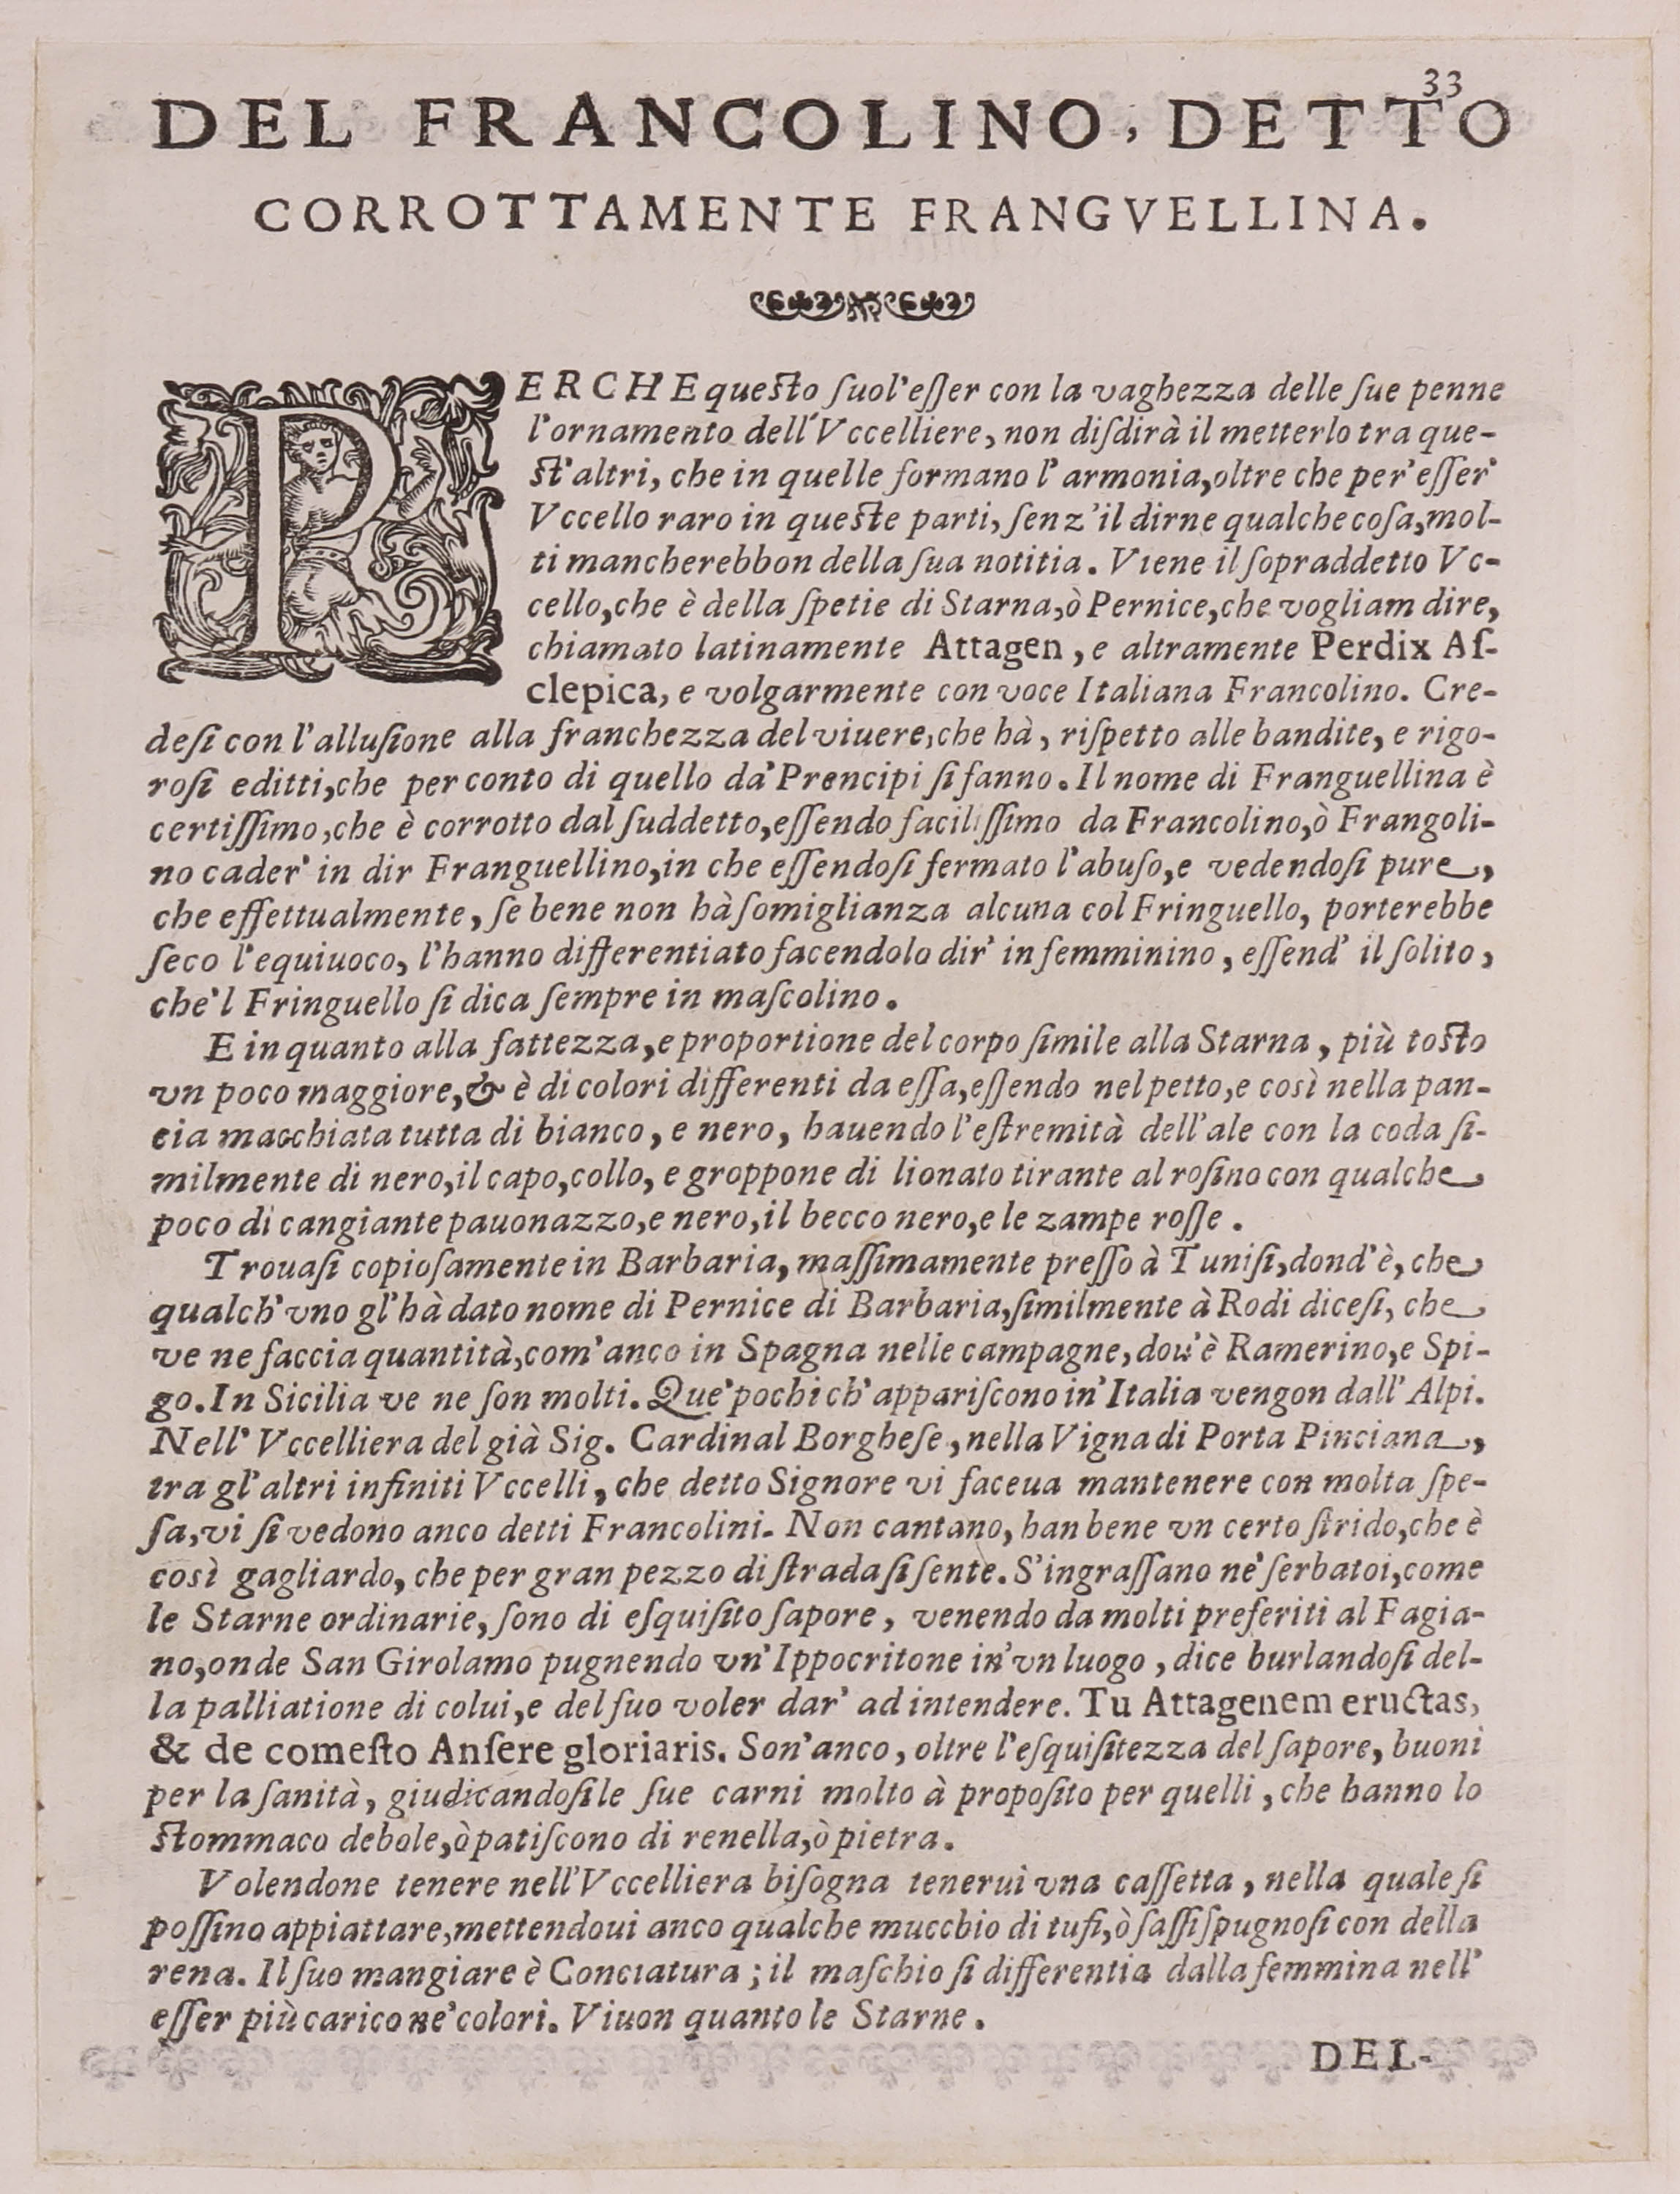 33
DEL FRANCOLINO, DETTO
CORROTTAMENTE FRANGVELLINA.
PERCHE questo ſuol'eſſer con la vaghezza delle ſue penne
l'ornamento dell'Vccelliere, non diſdirà il metterlo tra que-
st'altri, che in quelle formano l'armonia, oltre che per'eſſer'
Vccello raro in queste parti, ſenz'il dirne qualche coſa, mol-
ti mancherebbon della ſua notitia. Viene il ſopraddetto Vc-
cello, che è della ſpetie di Starna, ò Pernice, che vogliam dire,
chiamato latinamente Attagen, e altramente Perdix Aſ-
clepica, e volgarmente con voce Italiana Francolino. Cre-
deſi con l'alluſione alla franchezza del viuere, che hà, riſpetto alle bandite, e rigo-
roſi editti, che per conto di quello da' Prencipi ſi fanno. Il nome di Franguellina è
certiſſimo, che è corrotto dal ſuddetto, eſſendo faciliſſimo da Francolino, ò Frangoli-
no cader' in dir Franguellino, in che eſſendoſi fermato l'abuſo, e vedendoſi pure,
che effettualmente, ſe bene non hà ſomiglianza alcuna col Fringuello, porterebbe
ſeco l'equiuoco, l'hanno differentiato facendolo dir' in femminino, eſſend' il ſolito,
che'l Fringuello ſi dica ſempre in maſcolino.
E in quanto alla fattezza, e proportione del corpo ſimile alla Starna, più tosto
vn poco maggiore, & è di colori differenti da eſſa, eſſendo nel petto, e così nella pan-
cia macchiata tutta di bianco, e nero, hauendo l'eſtremità dell'ale con la coda ſi-
milmente di nero, il capo, collo, e groppone di lionato tirante al roſino con qualche
poco di cangiante pauonazzo, e nero, il becco nero, e le zampe roſſe.
Trouaſi copioſamente in Barbaria, maſſimamente preſſo à Tuniſi, dond'è, che
qualch'vno gl'hà dato nome di Pernice di Barbaria, ſimilmente à Rodi diceſi, che
ve ne faccia quantità, com'anco in Spagna nelle campagne, dou'è Ramerino, e Spi-
go. In Sicilia ve ne ſon molti. Que' pochi ch'appariſcono in'Italia vengon dall'Alpi.
Nell'Vccelliera del già Sig. Cardinal Borgheſe, nella Vigna di Porta Pinciana,
tra gl'altri infiniti Vccelli, che detto Signore vi faceua mantenere con molta ſpe-
ſa, vi ſi vedono anco detti Francolini. Non cantano, han bene vn certo ſtrido, che è
così gagliardo, che per gran pezzo di ſtrada ſi ſente. S'ingraſſano ne' ſerbatoi, come
le Starne ordinarie, ſono di eſquiſito ſapore, venendo da molti preferiti al Fagia-
no, onde San Girolamo pugnendo vn'Ippocritone in'vn luogo, dice burlandoſi del-
la palliatione di colui, e del ſuo voler dar' ad intendere. Tu Attagenem eructas,
& de comeſto Anſere gloriaris. Son'anco, oltre l'eſquiſitezza del ſapore, buoni
per la ſanità, giudicandoſi le ſue carni molto à propoſito per quelli, che hanno lo
stommaco debole, ò patiſcono di renella, ò pietra.
Volendone tenere nell'Vccelliera biſogna tenerui vna caſſetta, nella quale ſi
poſſino appiattare, mettendoui anco qualche mucchio di tufi, ò ſaſſi ſpugnoſi con della
rena. Il ſuo mangiare è Conciatura; il maſchio ſi differentia dalla femmina nell'
eſſer più carico ne' colori. Viuon quanto le Starne.
DEL-